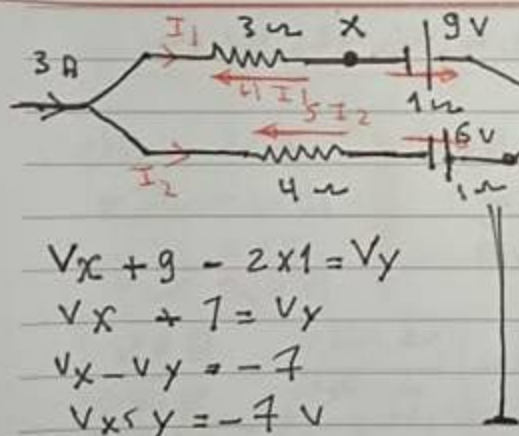 I₁ 3Ω X 9V
3A
4I₁ 1Ω
5I₂ 6V
I₂ 4Ω 1Ω
Vx + 9 - 2×1 = Vy
Vx + 7 = Vy
Vx - Vy = -7
Vx<y = -7 V